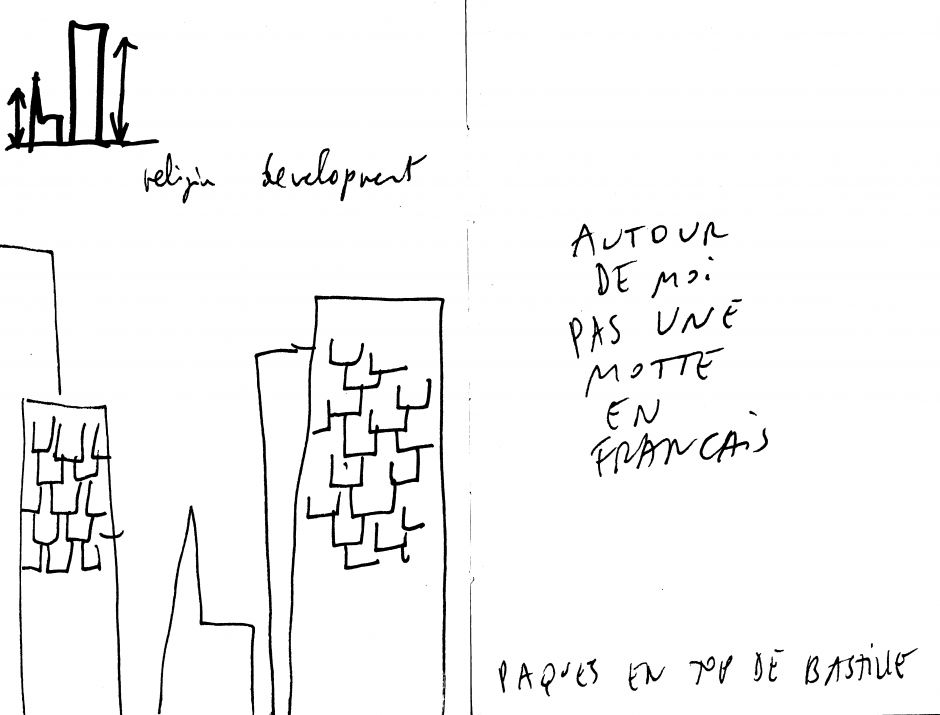 religion development
AUTOUR
DE MOI
PAS UNE
MOTTE
EN
FRANCAIS
PAQUES EN TOP DE BASTILLE